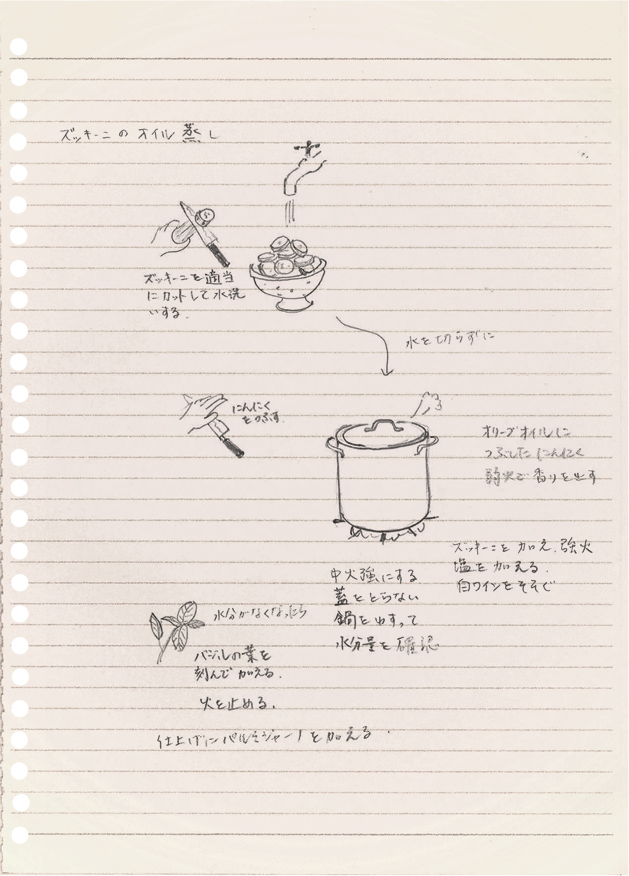 ズッキーニのオイル蒸し
ズッキーニを適当
にカットして水洗
いする.
水を切らずに
にんにく
をつぶす.
オリーブオイルに
つぶしたにんにく
弱火で香りを出す
ズッキーニを加え.強火
塩を加える.
白ワインをそそぐ
中火強にする
蓋をとらない
鍋をゆすって
水分量を確認
水分がなくなったら
バジルの葉を
刻んで加える.
火を止める.
仕上げにパルミジャーノを加える.